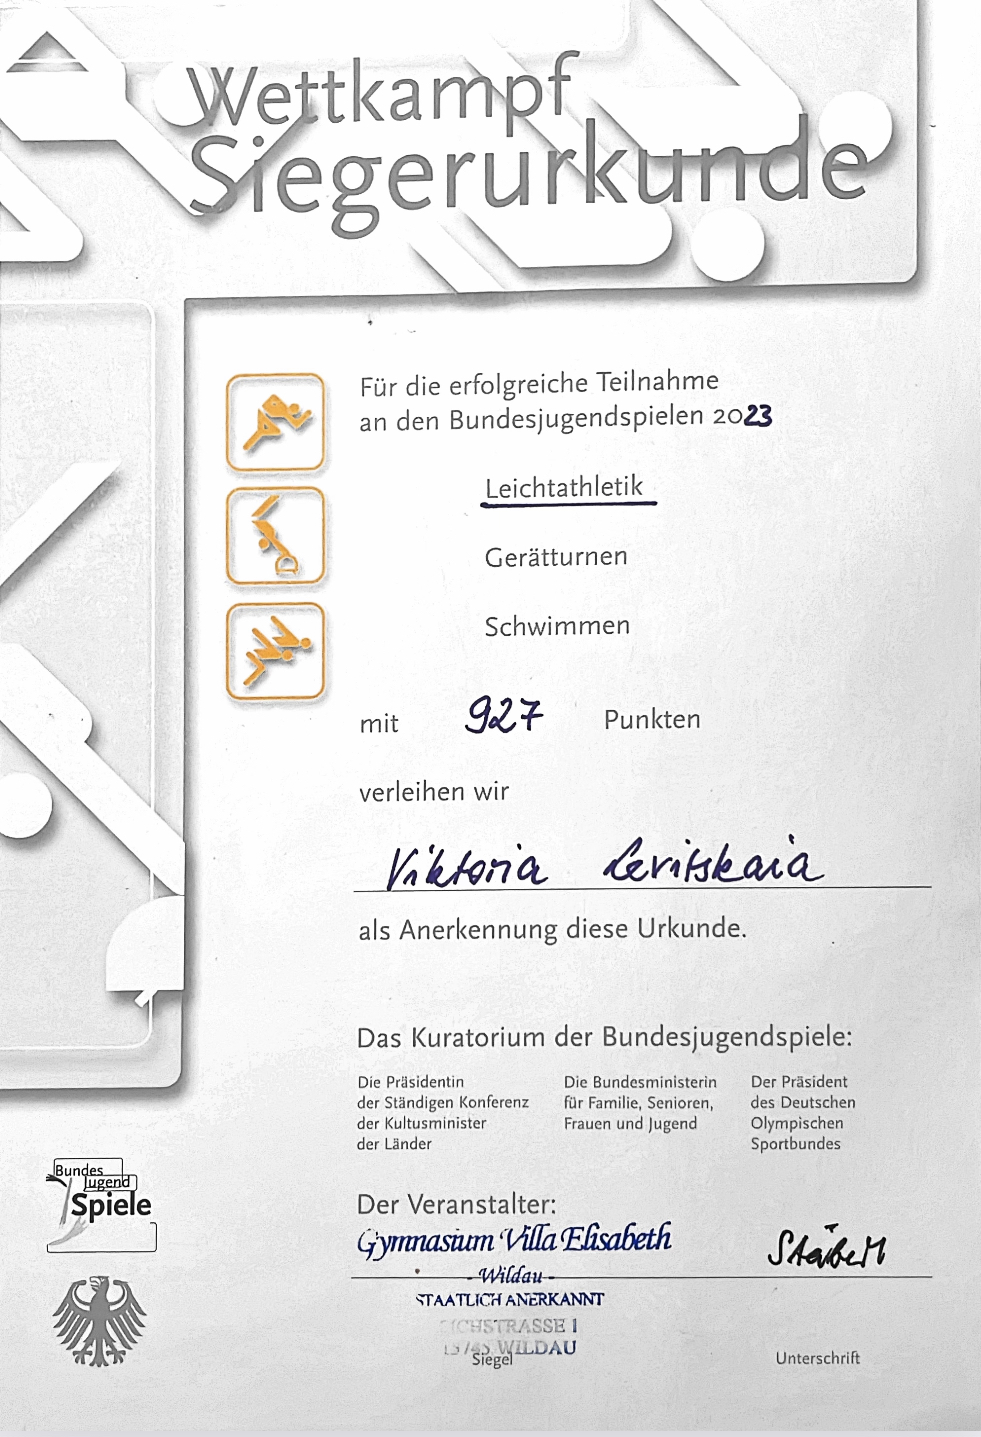 Wettkampf
Siegerurkunde
Für die erfolgreiche Teilnahme
an den Bundesjugendspielen 2023
Leichtathletik
Gerätturnen
Schwimmen
mit 927 Punkten
verleihen wir
Viktoria Levitskaia
als Anerkennung diese Urkunde.
Das Kuratorium der Bundesjugendspiele:
Die Präsidentin
der Ständigen Konferenz
der Kultusminister
der Länder
Die Bundesministerin
für Familie, Senioren,
Frauen und Jugend
Der Präsident
des Deutschen
Olympischen
Sportbundes
Bundes
Jugend
Spiele
Der Veranstalter:
Gymnasium Villa Elisabeth
- Wildau -
STAATLICH ANERKANNT
1
WILDAU
Siegel
Unterschrift